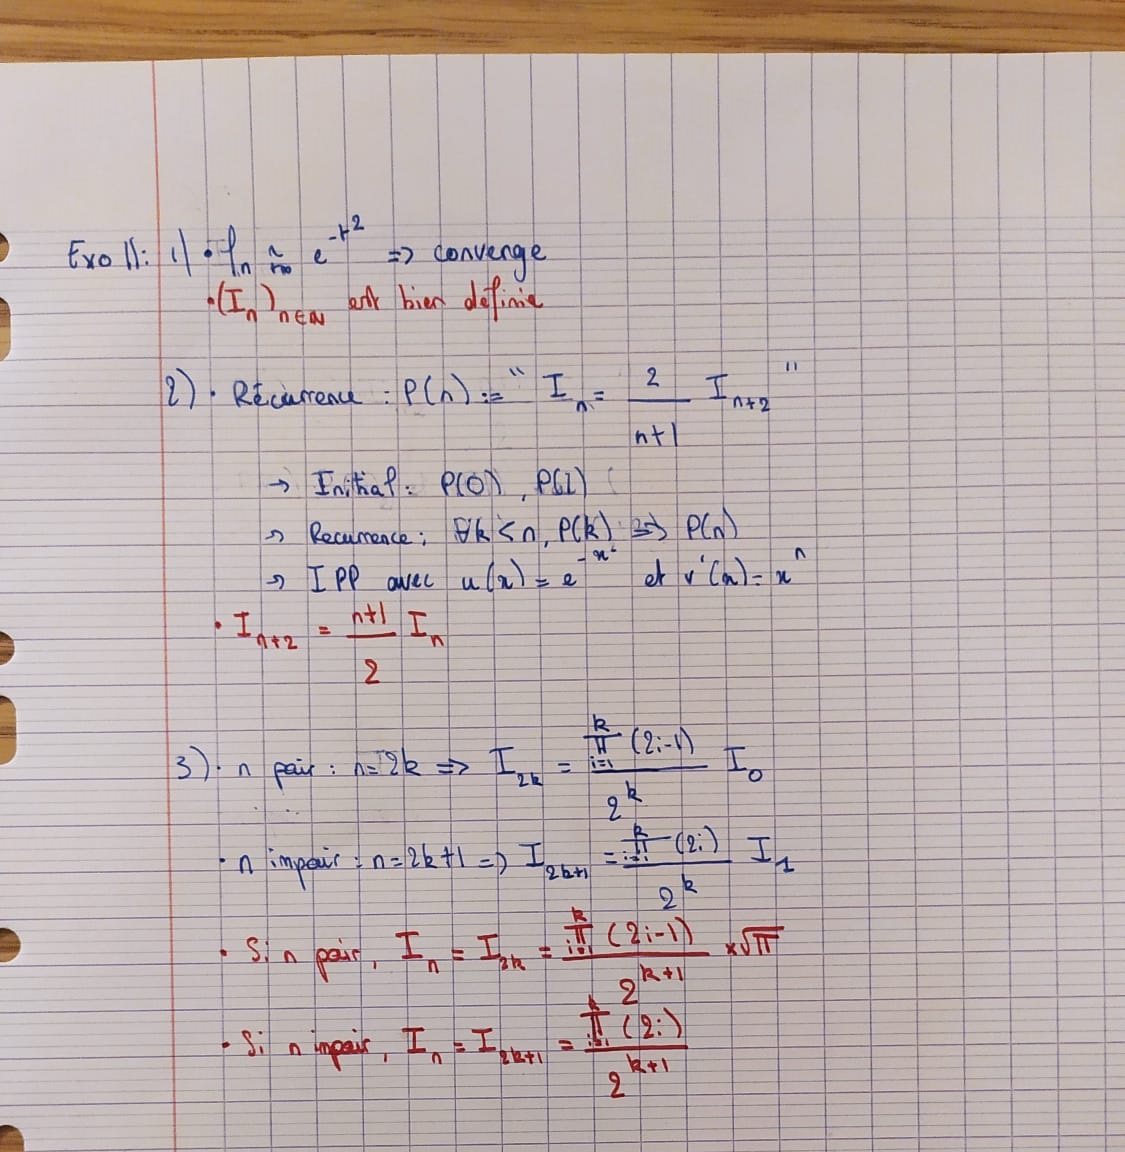 Exo 11: 1) • fₙ ~₊∞ e^{-t²} => converge
• (Iₙ)ₙ∈ℕ est bien définie
2) • Récurrence : P(n) := " Iₙ = 2/(n+1) Iₙ₊₂ "
→ Initial : P(0), P(1)
→ Recurrence : ∀k<n, P(k) => P(n)
→ IPP avec u(x) = e^{-x²} et v'(x) = xⁿ
• Iₙ₊₂ = (n+1)/2 Iₙ
3) • n pair : n=2k => I₂ₖ = ∏_{i=1}^{k} (2i-1) / 2^k I₀
• n impair : n=2k+1 => I₂ₖ₊₁ = ∏_{i=1}^{k} (2i) / 2^k I₁
• Si n pair, Iₙ = I₂ₖ = ∏_{i=1}^{k} (2i-1) / 2^{k+1} × √π
• Si n impair, Iₙ = I₂ₖ₊₁ = ∏_{i=1}^{k} (2i) / 2^{k+1}